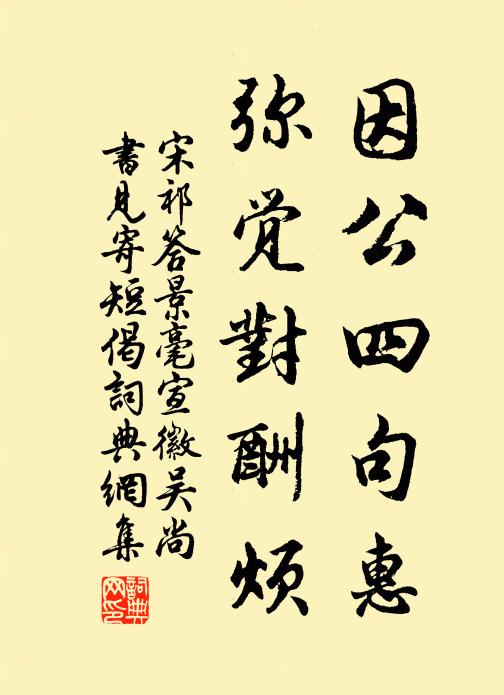 因公四句惠
弥觉對酬煩
宋祁答景毫宣徽吴尚
書見寄短偈詞典網集
詞典網印